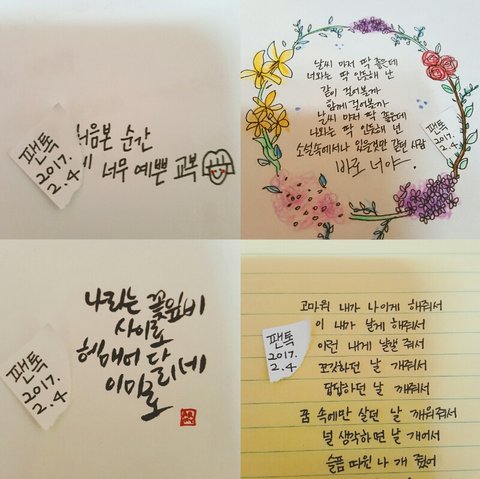 처음본 순간
너무 예쁜 교복
팬톡
2017.
2.4
날씨 마저 딱 좋은데
너와는 딱 인듯해 난
같이 걸어볼까
함께 걸어볼까
날씨 마저 딱 좋은데
나와는 딱 인듯해 넌
소설속에서나 있을법한 같던 사람
바로 너야.
팬톡
2017.
2.4
나리는 꽃잎비
사이로
헤매어 달리네
이미로
팬톡
2017.
2.4
고마워 내가 나이게 해줘서
이 내가 날게 해줘서
이런 내게 날갤 줘서
꼬깃하던 날 개줘서
답답하던 날 깨줘서
꿈 속에만 살던 날 깨워줘서
널 생각하면 날 개어서
슬픔 따윈 나 개 줬어
팬톡
2017.
2.4